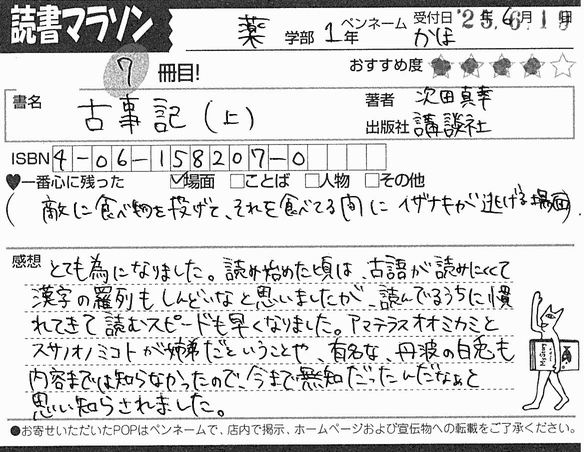 読書マラソン
薬 学部 1年 ペンネーム かほ 受付日 '25.6.19
7 冊目! おすすめ度 ★★★★☆
書名 古事記(上) 著者 次田真幸
出版社 講談社
ISBN 4-06-158207-0
♥一番心に残った ☑場面 □ことば □人物 □その他
(敵に食べ物を投げて、それを食べてる間にイザナキが逃げる場面).
感想 とても為になりました。読み始めた頃は、古語が読みにくくて
漢字の羅列もしんどいなと思いましたが、読んでるうちに慣
れてきて読むスピードも早くなりました。アマテラスオオミカミと
スサノオノミコトが姉弟だということや、有名な、丹波の白兎も
内容までは知らなかったので、今まで無知だったんだなぁと
思い知らされました。
●お寄せいただいたPOPはペンネームで、店内で掲示、ホームページおよび宣伝物への転載をご了承ください。